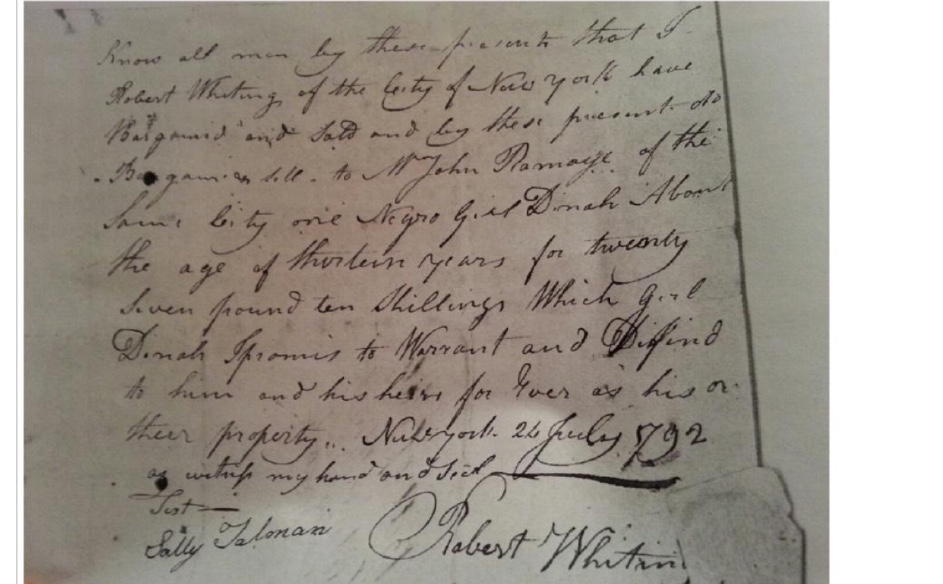 Know all men by these presents that I
Robert Whiting of the City of New York have
Bargained and Sold and by these present do
Bargain & sell to Mr John Ramage of the
Same City one Negro Girl Dinah About
the age of thirteen years for twenty
Seven pound ten Shillings Which Girl
Dinah I promis to Warrant and Difind
to him and his heirs for Ever as his or
their property.. New york 24 July 1792
as witness my hand and Seal
Test
Sally Talman
Robert Whitin